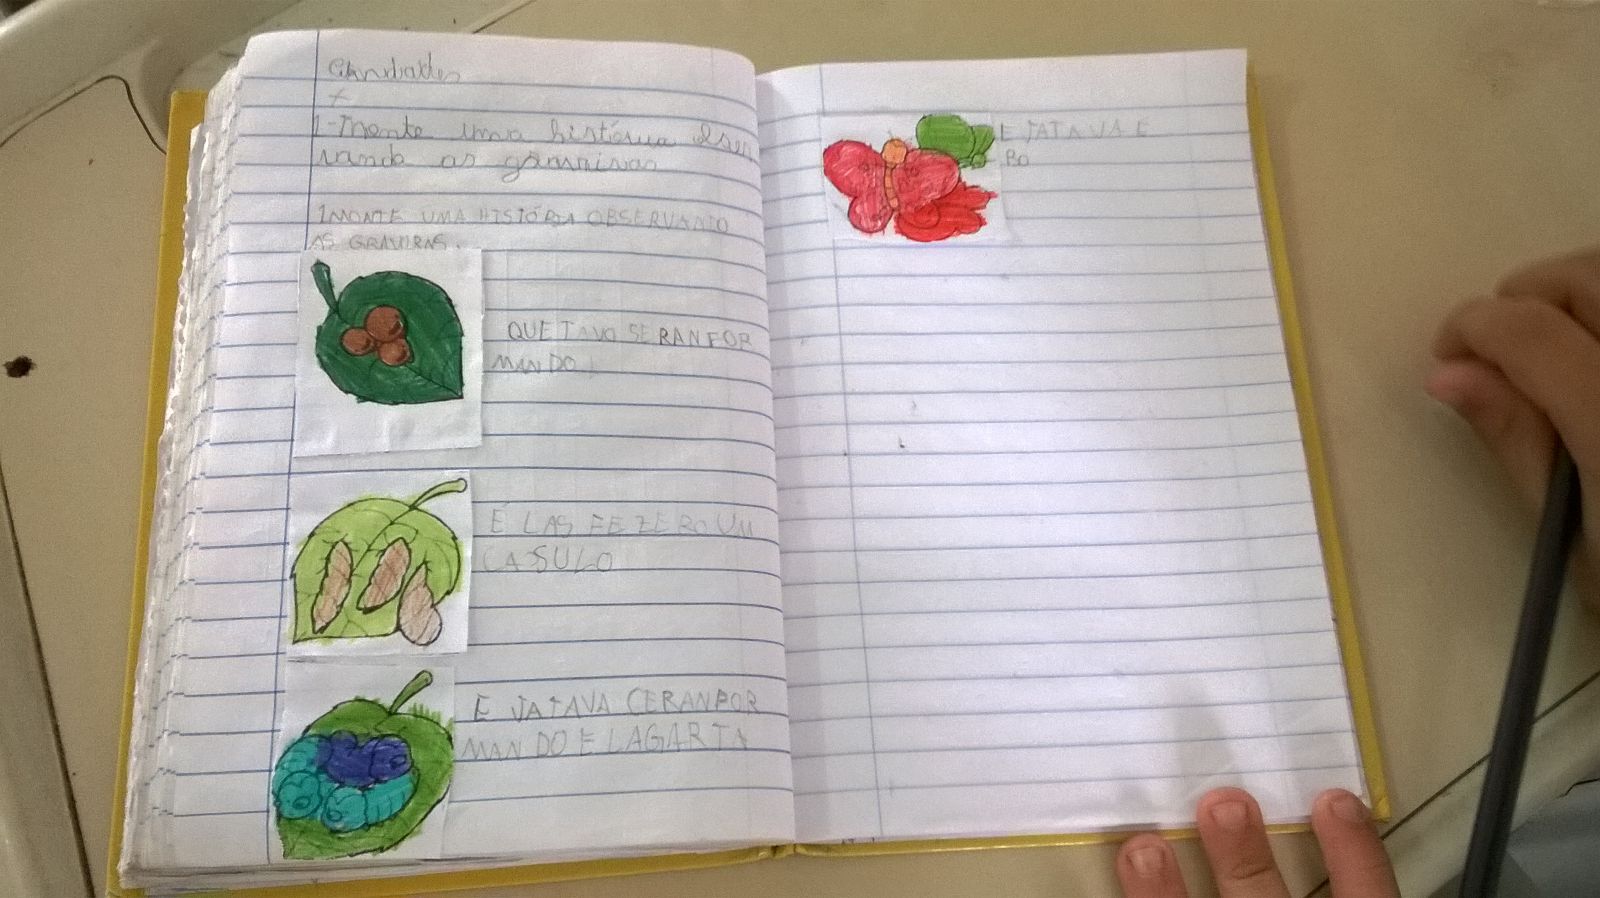 1-Monte uma história obser
vando as gravuras
1MONTE UMA HISTÓRIA OBSERVANDO
AS GRAVURAS.
QUE TAVO SE RANFOR
MANDO
E LAS FEZERO UM
CASULO
E JATAVA CERANFOR
MANDO E LAGARTA
E JATAVA E
BO